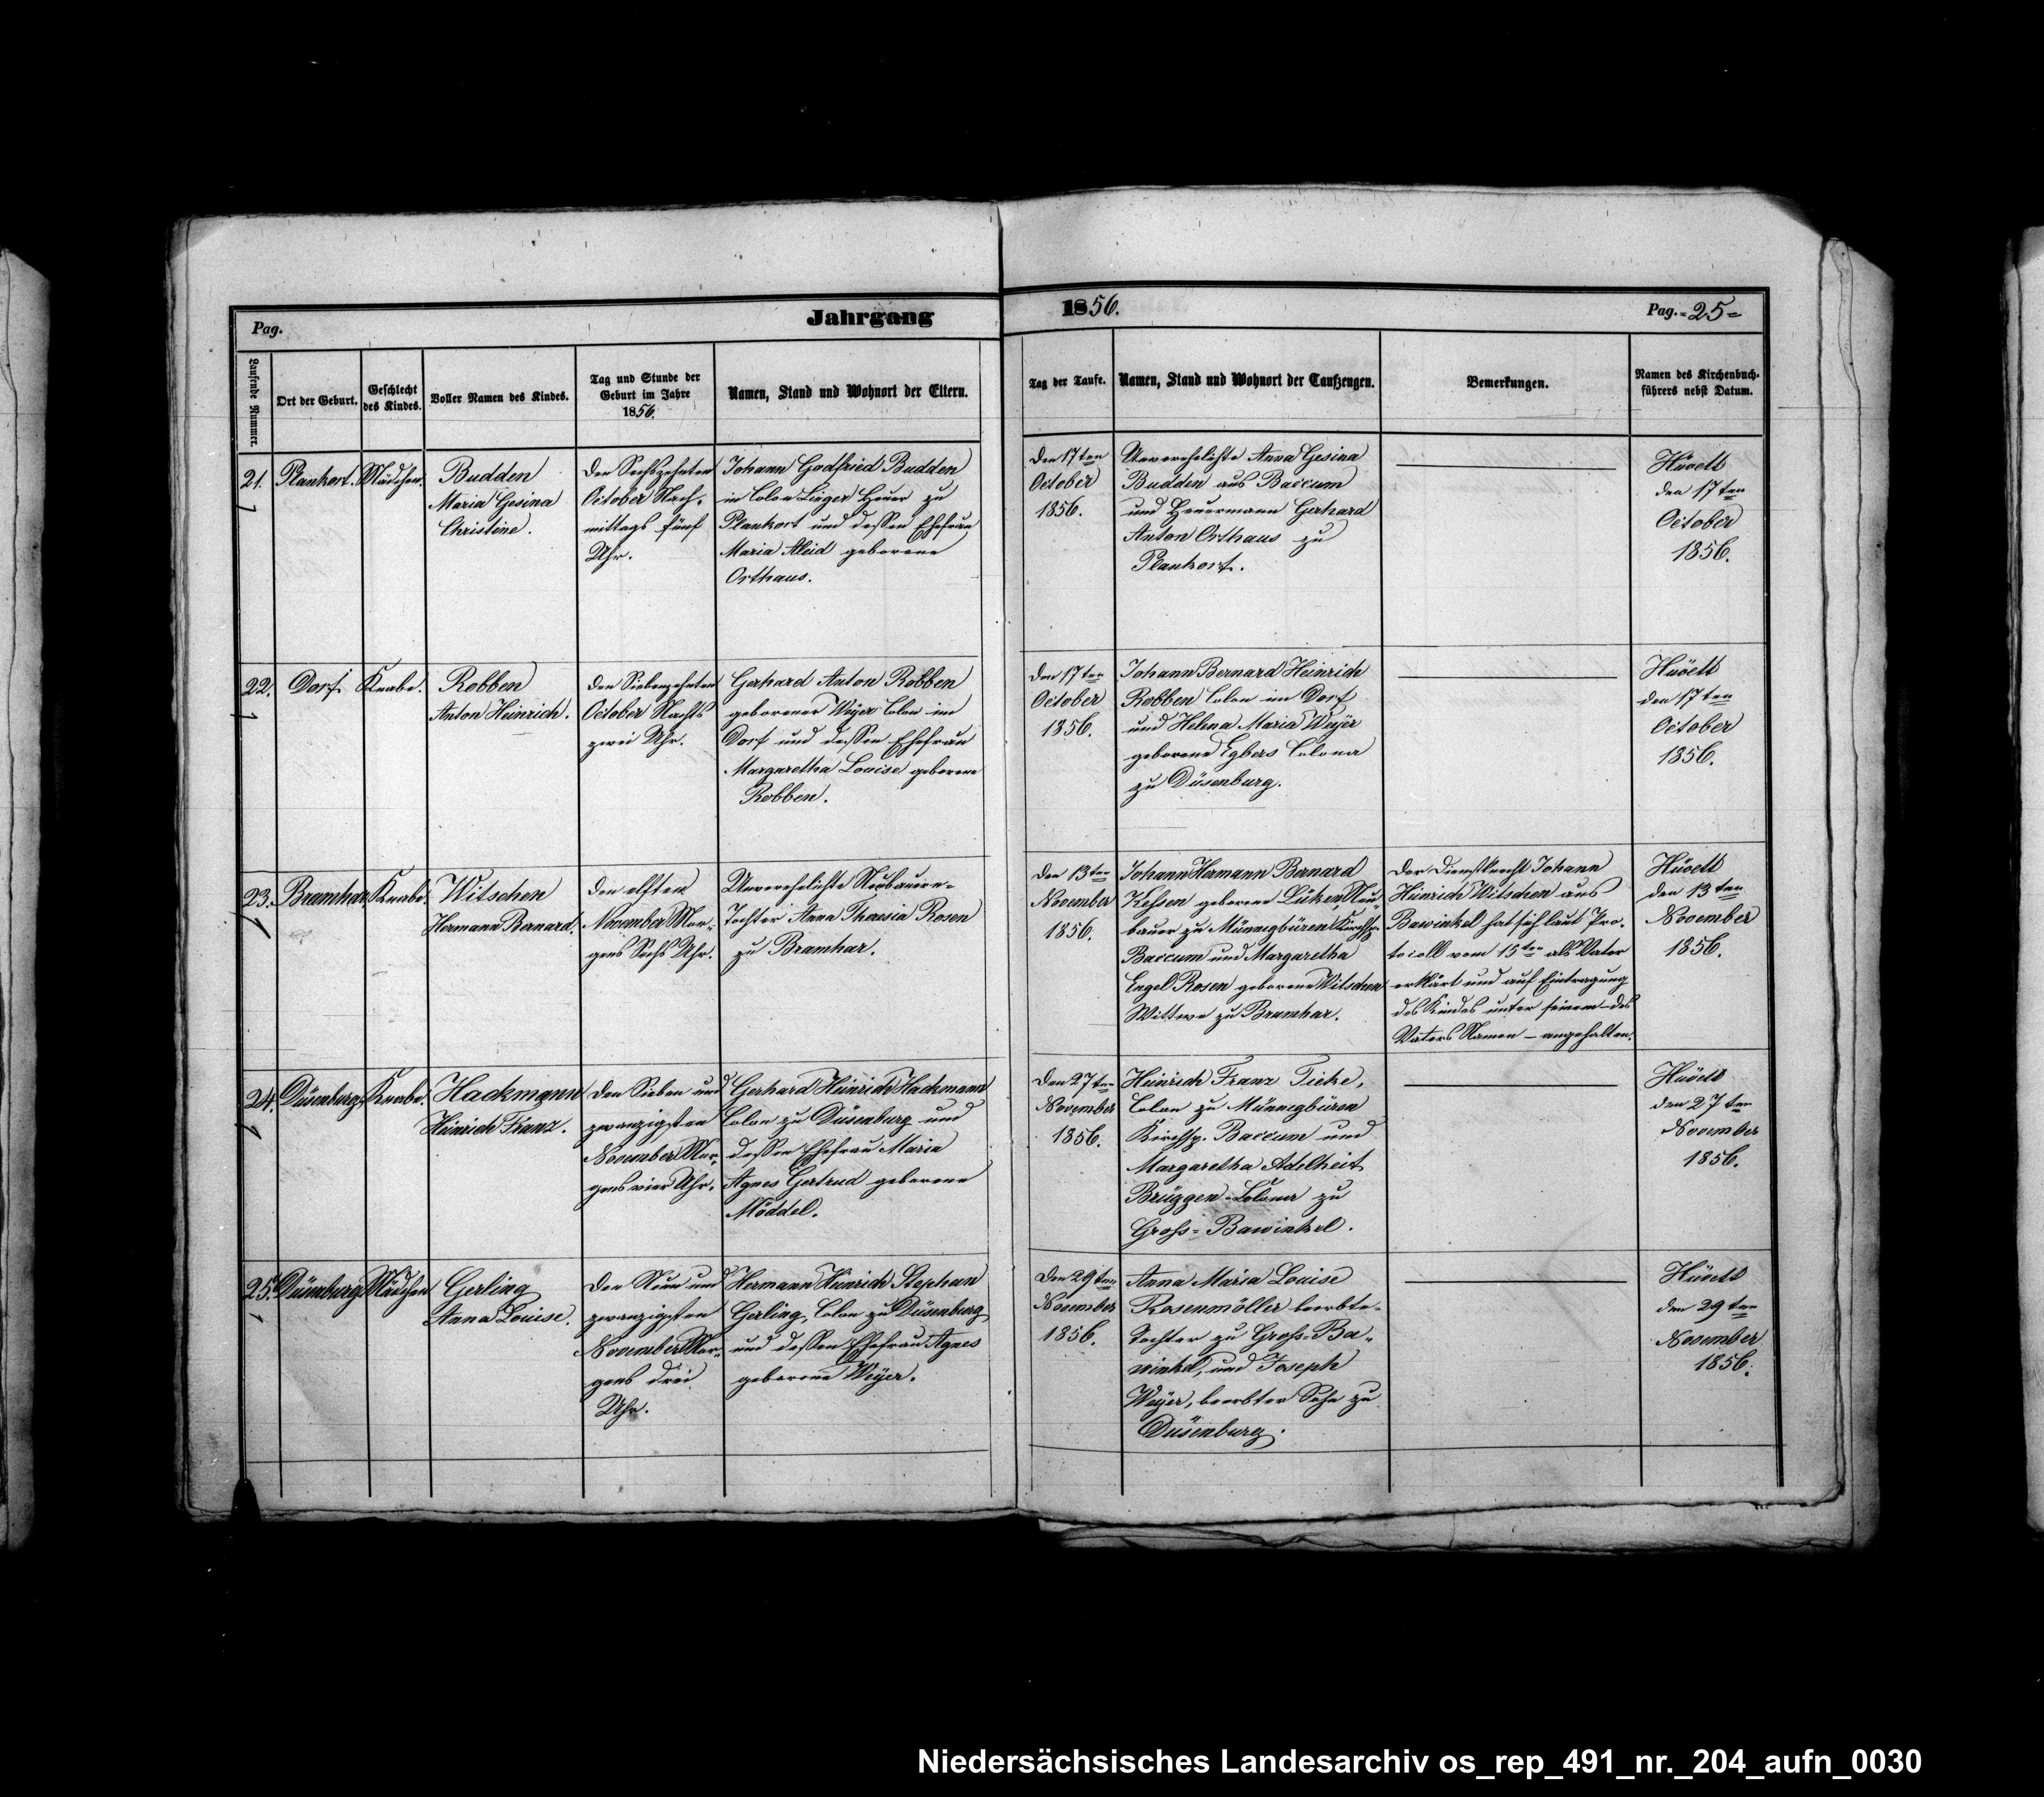 Pag.
Jahrgang
1856.
Pag. =25=
Laufende Nummer.
Ort der Geburt.
Geschlecht
des Kindes.
Voller Namen des Kindes.
Tag und Stunde der
Geburt im Jahre
1856.
Namen, Stand und Wohnort der Eltern.
Tag der Taufe.
Namen, Stand und Wohnort der Taufzeugen.
Bemerkungen.
Namen des Kirchenbuch-
führers nebst Datum.
21.
Plankort.
Mädchen.
Budden
Maria Gesina
Christine.
Den Sechszehnten
October Nach-
mittags fünf
Uhr.
Johann Godfried Budden
in Colon Heuer zu
Plankort und dessen Ehefrau
Maria Aleid geborene
Orthaus.
Den 17ten
October
1856.
Unverehelichte Anna Gesina
Budden aus Baccum
und Heuermann Gerhard
Anton Orthaus zu
Plankort.
den 17ten
October
1856.
22.
Dorf
Knabe.
Robben
Anton Heinrich.
Den Siebenzehnten
October Nachts
zwei Uhr.
Gerhard Anton Robben
geborener Weÿer Colon im
Dorf und dessen Ehefrau
Margaretha Louise geborene
Robben.
Den 17ten
October
1856.
Johann Bernard Heinrich
Robben Colon im Dorf
und Helena Maria Weÿer
geborene Egbers Colona
zu Düsenburg.
den 17ten
October
1856.
23.
Bramhar.
Knabe.
Witschen
Hermann Bernard.
Den elften
November Mor-
gens Sechs Uhr.
Unverehelichte Neubauern-
Tochter Anna Theresia Rosen
zu Bramhar.
Den 13ten
November
1856.
Johann Hermann Bernard
geborene Lüken, Neu-
bauer zu Münnigbüren Kirchsp.
Baccum und Margaretha
Engel Rosen geborene Witschen
Wittwe zu Bramhar.
Der Dienstknecht Johann
Heinrich Witschen aus
Bawinkel hat sich laut Pro-
tocoll vom 15ten als Vater
erklärt und auf Eintragung
des Kindes unter seinem – des
Vaters Namen – angehalten.
den 13ten
November
1856.
24.
Düsenburg.
Knabe.
Hackmann
Heinrich Franz.
Den Sieben und
zwanzigsten
November Mor-
gens vier Uhr.
Gerhard Heinrich Hackmann
Colon zu Düsenburg und
dessen Ehefrau Maria
Agnes Gertrud geborene
Möddel.
Den 27ten
November
1856.
Heinrich Franz Tieke,
Colon zu Münnigbüren
Kirchsp. Baccum und
Margaretha Adelheit
Brüggen Colona zu
Gross-Bawinkel.
den 27ten
November
1856.
25.
Düsenburg.
Mädchen
Gerling
Anna Louise.
Den Neun und
zwanzigsten
November Mor-
gens drei
Uhr.
Hermann Heinrich Stephan
Gerling, Colon zu Düsenburg
und dessen Ehefrau Agnes
geborene Weÿer.
Den 29ten
November
1856.
Anna Maria Louise
Rosenmöller beerbte-
Tochter zu Gross-Ba-
winkel, und Joseph
Weÿer, beerbter Sohn zu
Düsenburg.
den 29ten
November
1856.
Niedersächsisches Landesarchiv os_rep_491_nr._204_aufn_0030